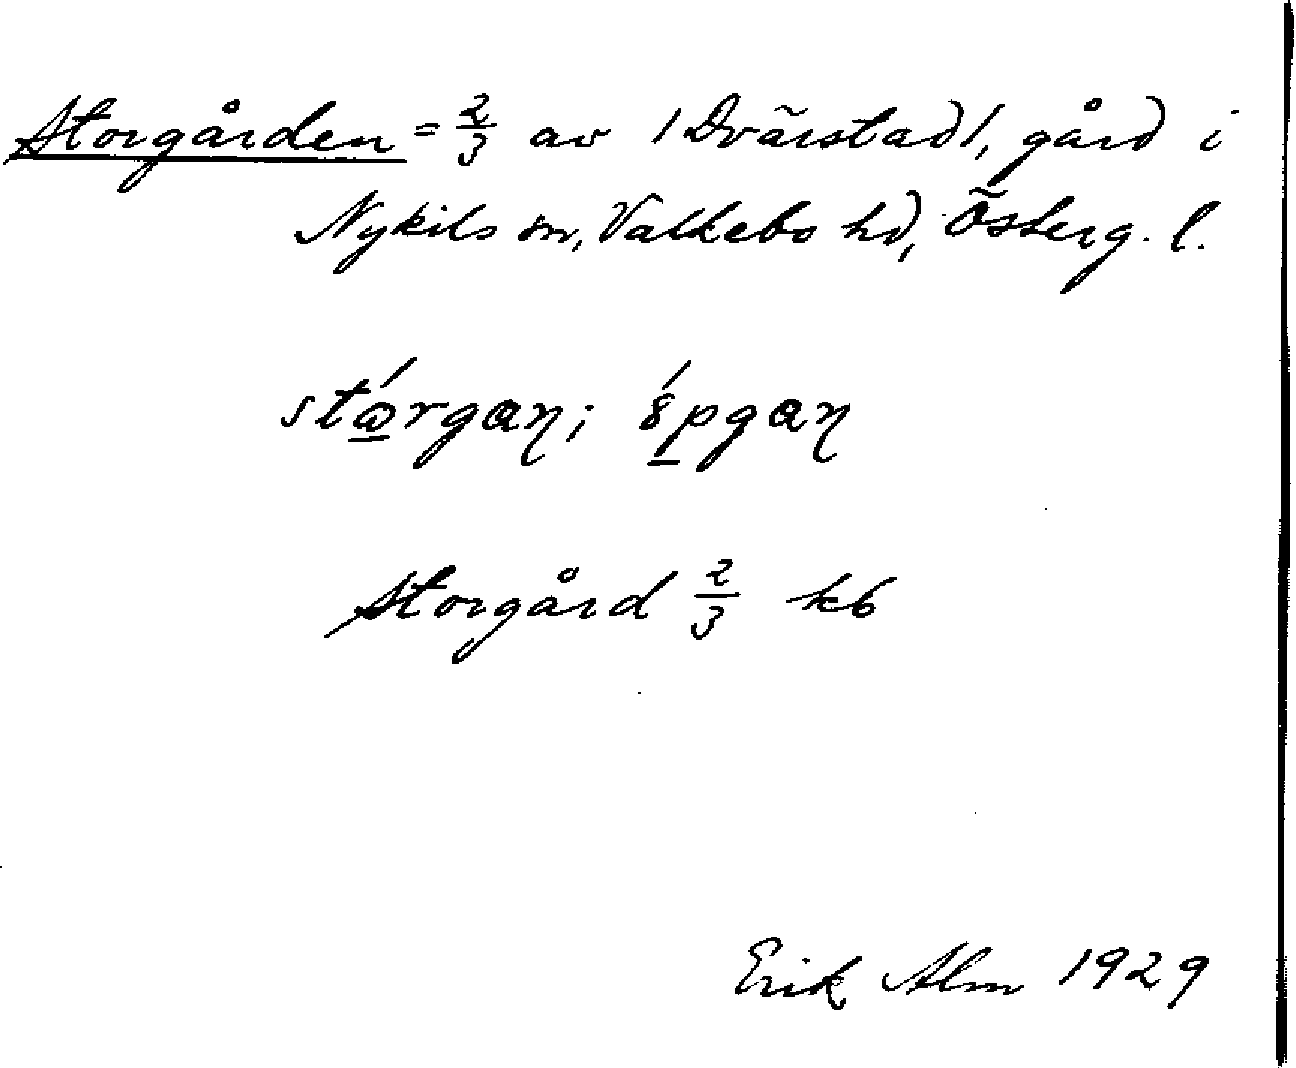 Storgården = 2/3 av /Dvärstad/, gård i
Nykils sn, Valkebo hd, Österg. l.
Storgård 2/3 kb
Erik Alm 1929